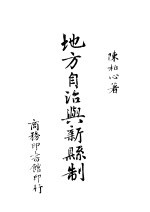 陳柏心著
地方自治與新縣制
商務印書館印行